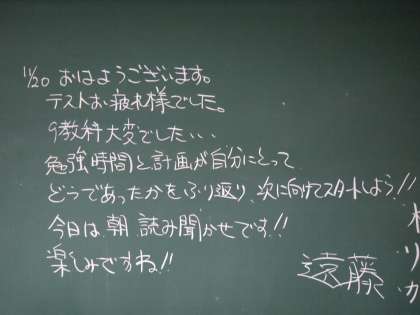 11/20 おはようございます。
テストお疲れ様でした。
9教科大変でした...
勉強時間と計画が自分にとって
どうであったかをふり返り、次に向けてスタートしよう!!
今日は朝 読み聞かせです!!
楽しみですね!!
遠藤
オリカ